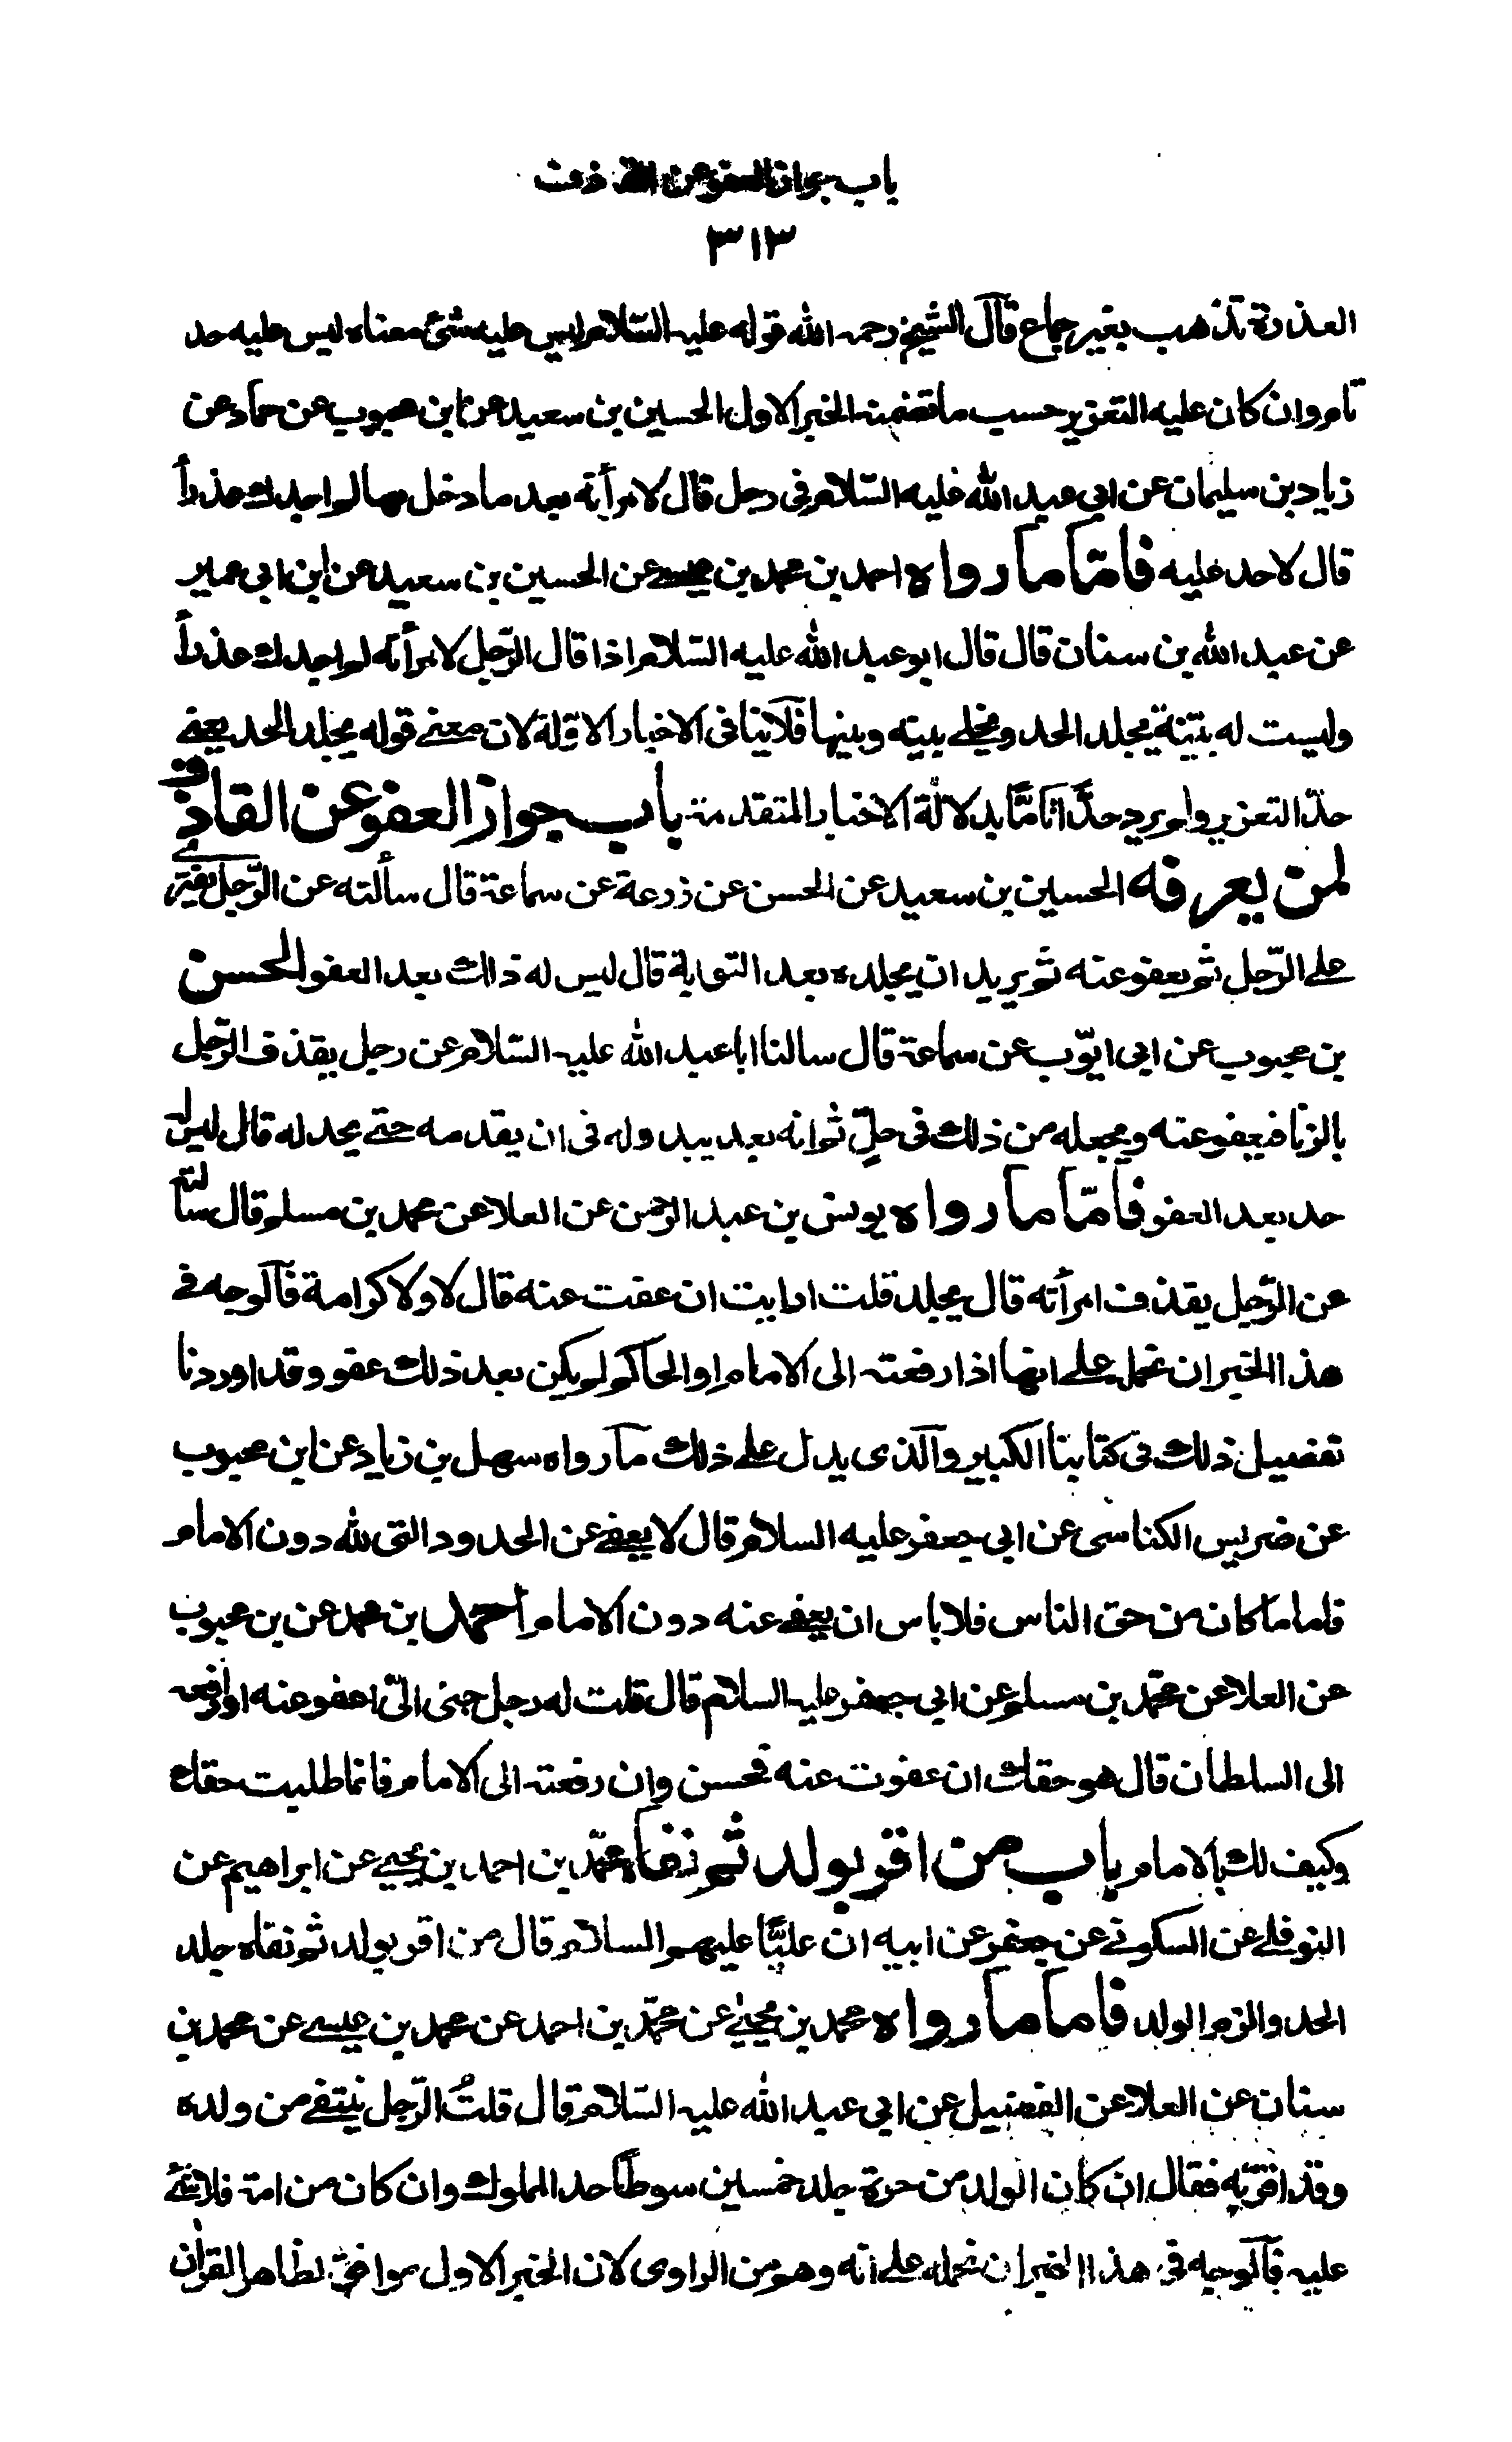 باب جواز العفو عن القاذف
٣١٣
العذرة تذهب بغير جماع قال الشيخ رحمه الله قوله عليه السّلام ليس عليه شئ معناه ليس عليه حد
تام وان كان عليه التعزير حسب ما تضمنه الخبر الاول الحسين بن سعيد عن ابن محبوب عن حماد عن
زياد بن سليمان عن ابي عبد الله عليه السّلام في رجل قال لامرأته بعد ما دخل بها لم اجدك عذرأ
قال لا حد عليه فامّا ما رواه احمد بن محمد بن عيسى عن الحسين بن سعيد عن ابن ابي عمير
عن عبد الله بن سنان قال قال ابو عبد الله عليه السّلام اذا قال الرّجل لامرأته لم اجدك عذرأ
وليست له بيّنة يجلد الحد ويخلى بينه وبينها فلا ينافى الاخبار الاوّلة لان معنى قوله يجلد الحد يعنى
حدّ التعزير ولم يرد حدّا تامّا بدلالة الاخبار المتقدمة باب جواز العفو عن القاذف
لمن يعرفه الحسين بن سعيد عن الحسن عن زرعة عن سماعة قال سألته عن الرّجل يفترى
على الرّجل ثم يعفو عنه ثم يريد ان يجلده بعد التوبة قال ليس له ذلك بعد العفو الحسن
بن محبوب عن ابي ايّوب عن سماعة قال سالنا ابا عبد الله عليه السّلام عن رجل يقذف الرّجل
بالزنا فيعفو عنه ويجعله من ذلك في حلّ ثم انه بعد يبدو له في ان يقدمه حتى يحد له قال ليس له
حد بعد العفو فامّا ما رواه يونس بن عبد الرحمن عن العلا عن محمد بن مسلم قال سألته
عن الرّجل يقذف امرأته قال يجلد قلت ارايت ان عفت عنه قال لا ولا كرامة فالوجه في
هذا الخبر ان نحمل على انها اذا رفعته الى الامام او الحاكم لم يكن بعد ذلك عفو وقد اوردنا
تفصيل ذلك في كتابنا الكبير والذى يدل على ذلك ما رواه سهل بن زياد عن ابن محبوب
عن ضريس الكناسى عن ابي جعفر عليه السلام قال لا يعفى عن الحدود التى لله دون الامام
فاما ما كان من حق الناس فلا باس ان يعفى عنه دون الامام احمد بن محمد عن بن محبوب
عن العلا عن محمّد بن مسلم عن ابي جعفر عليه السلام قال قلت له رجل جنى الىّ اعفو عنه او ارفعه
الى السلطان قال هو حقك ان عفوت عنه فحسن وان رفعته الى الامام فانما طلبت حقك
وكيف لك بالامام باب من اقر بولد ثم نفاه محمّد بن احمد بن يحيى عن ابراهيم عن
النوفلى عن السكونى عن جعفر عن ابيه ان عليّا عليهم السلام قال من اقر بولد ثم نفاه جلد
الحد والزم الولد فاما ما رواه محمد بن يحيى عن محمّد بن احمد عن محمد بن عيسى عن محمد بن
سنان عن العلا عن الفضيل عن ابي عبد الله عليه السّلام قال قلتُ الرّجل ينتفى من ولده
وقد اقرّ به فقال ان كان الولد من حرة جلد خمسين سوطًا حد المملوك وان كان من امة فلا شئ
عليه فالوجه في هذا الخبر ان نحمله على انّه وهم من الراوى لان الخبر الاول موافق لظاهر القران